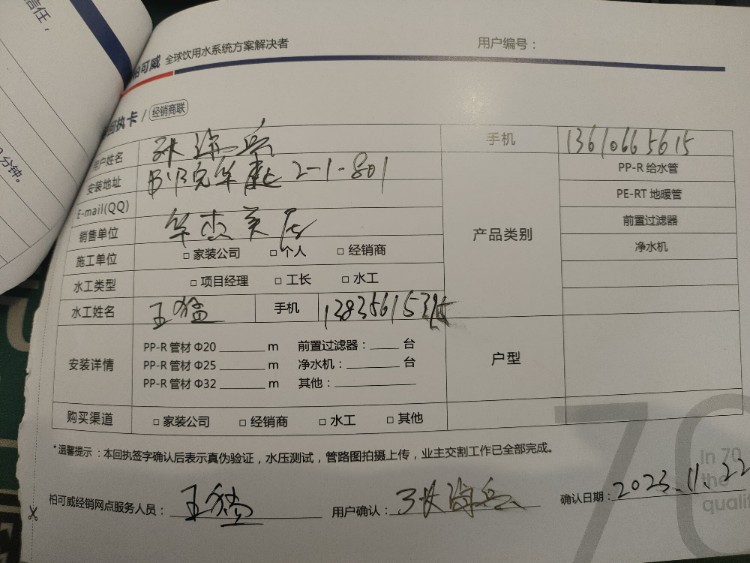 信任，
分钟。
柏可威 全球饮用水系统方案解决者 用户编号：
回执卡 / 经销商联
用户姓名 张海兵 手机 13610665615
安装地址 2-1-801 PP-R 给水管
E-mail(QQ) PE-RT 地暖管
销售单位 华杰 产品类别 前置过滤器
施工单位 □ 家装公司 □ 个人 □ 经销商 净水机
水工类型 □ 项目经理 □ 工长 □ 水工
水工姓名 王猛 手机
安装详情 PP-R 管材 Φ20 ______ m 前置过滤器：____ 台 户型
PP-R 管材 Φ25 ______ m 净水机：____ 台
PP-R 管材 Φ32 ______ m 其他：______
购买渠道 □ 家装公司 □ 经销商 □ 水工 □ 其他
*温馨提示：本回执签字确认后表示真伪验证，水压测试，管路图拍摄上传，业主交割工作已全部完成。
70
In 70
the
qualif
柏可威经销网点服务人员：王猛 用户确认：张海兵 确认日期：2023.11.22